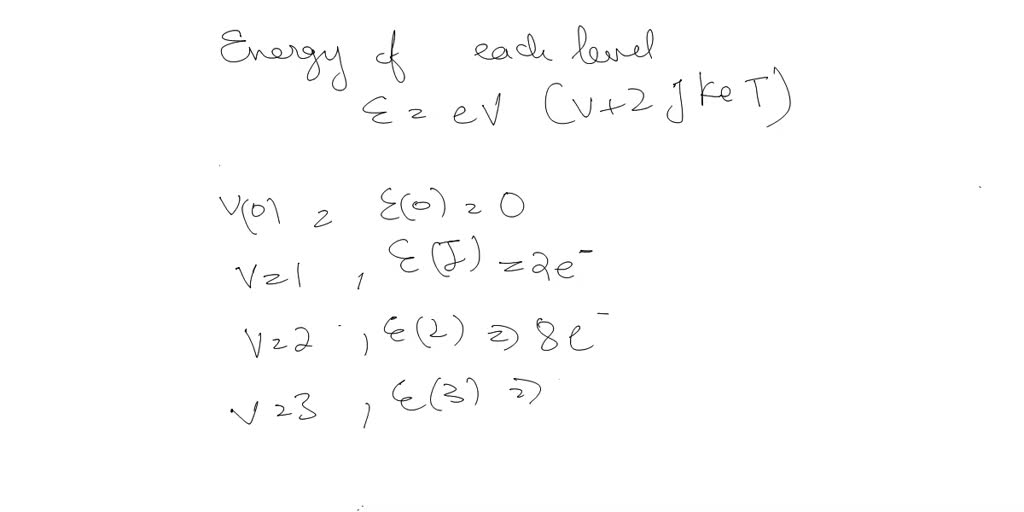 Energy of each level
ε = eV (V+2 J Ke T)
V(0) = ε(0) = 0
V=1 , ε(I) = 2e⁻
V=2 , ε(2) ⇒ 8e⁻
V=3 , ε(3) ⇒